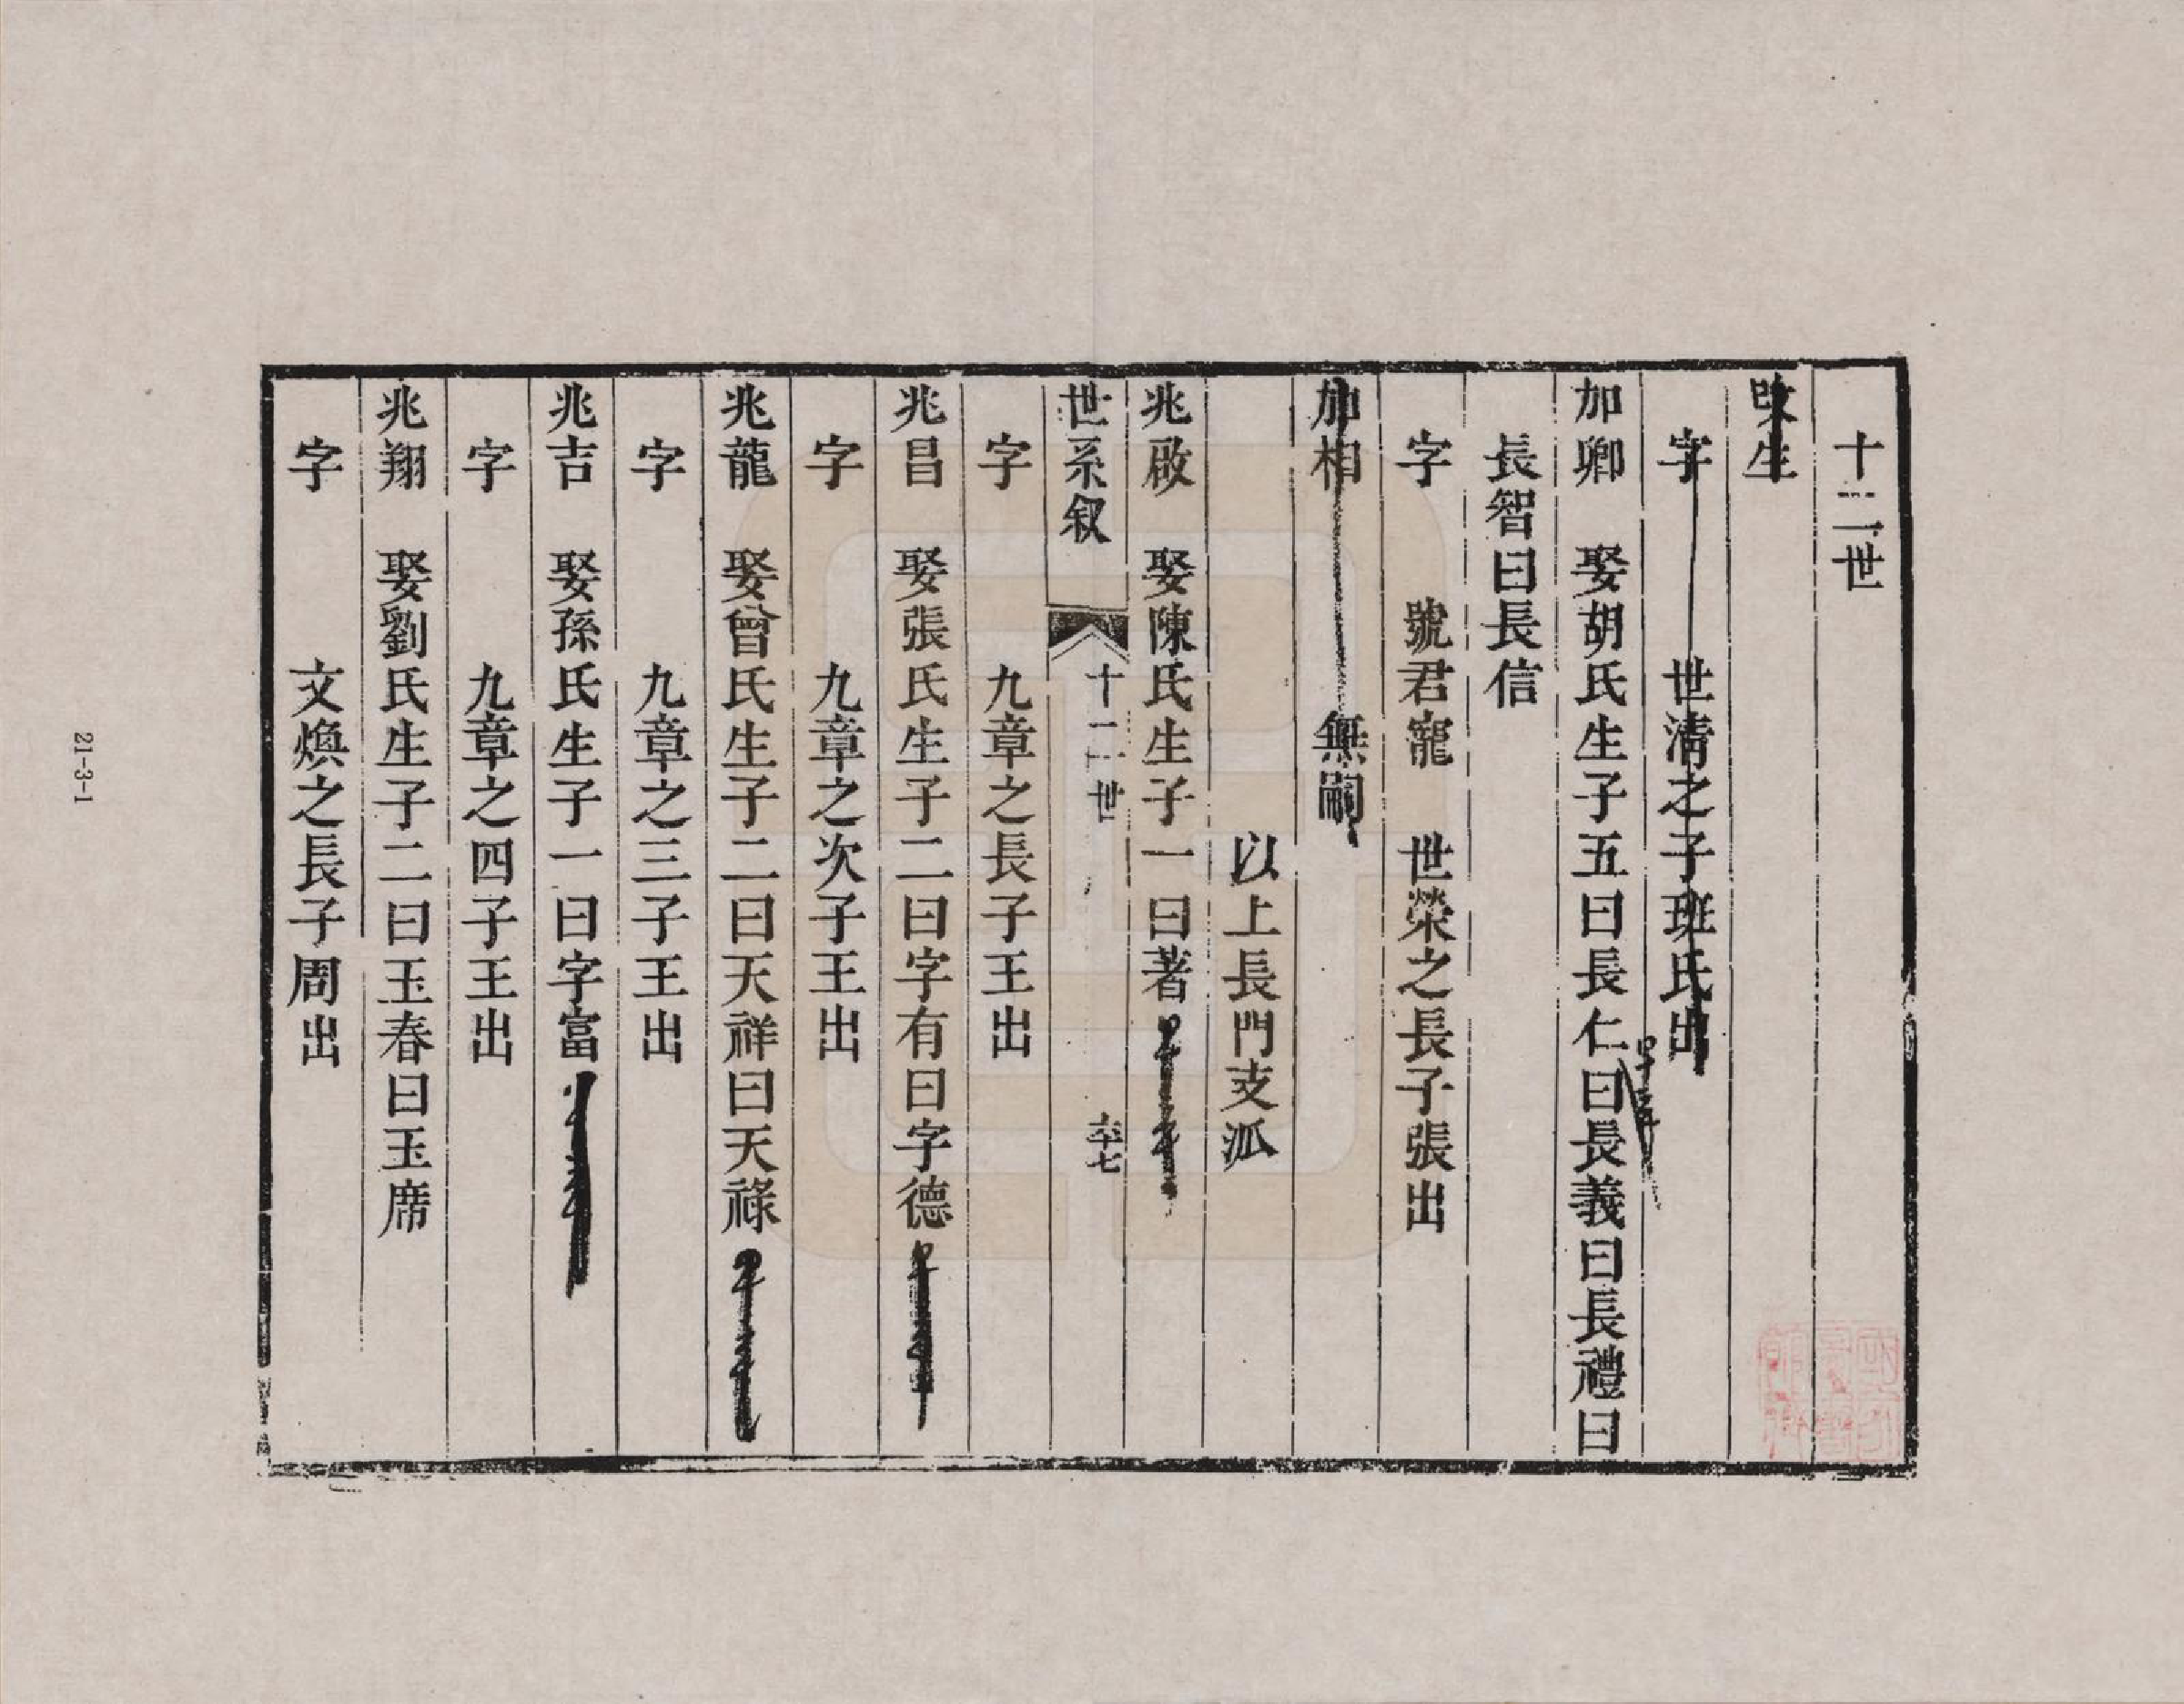 十二世
字　世清之子班氏出
加卿　娶胡氏生子五曰長仁曰長義曰長禮曰
長智曰長信
字　號君寵　世榮之長子張出
加相　無嗣
以上長門支派
兆啟　娶陳氏生子一曰著
世系叙　十二世　六十七
字　九章之長子王出
兆昌　娶張氏生子二曰字有曰字德
字　九章之次子王出
兆龍　娶曾氏生子二曰天祥曰天祿
字　九章之三子王出
兆吉　娶孫氏生子一曰字富
字　九章之四子王出
兆翔　娶劉氏生子二曰玉春曰玉席
字　文煥之長子周出
21-3-1